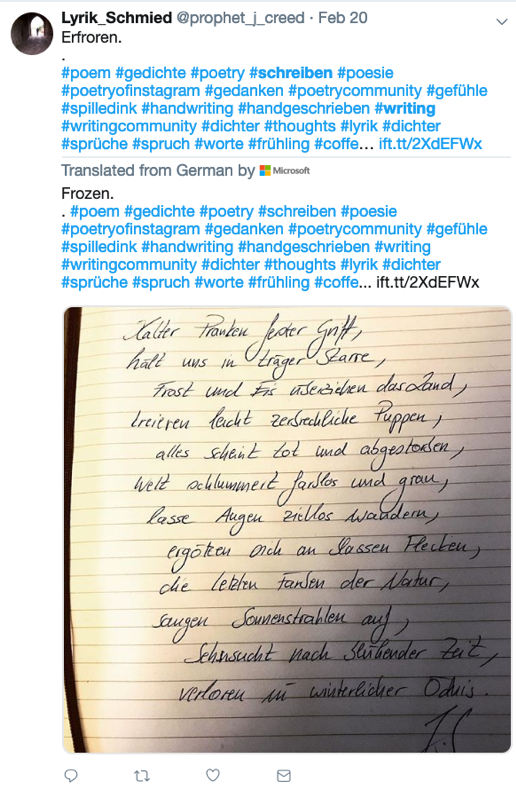 Lyrik_Schmied @prophet_j_creed · Feb 20
Erfroren.
.
#poem #gedichte #poetry #schreiben #poesie
#poetryofinstagram #gedanken #poetrycommunity #gefühle
#spilledink #handwriting #handgeschrieben #writing
#writingcommunity #dichter #thoughts #lyrik #dichter
#sprüche #spruch #worte #frühling #coffe… ift.tt/2XdEFWx
Translated from German by Microsoft
Frozen.
. #poem #gedichte #poetry #schreiben #poesie
#poetryofinstagram #gedanken #poetrycommunity #gefühle
#spilledink #handwriting #handgeschrieben #writing
#writingcommunity #dichter #thoughts #lyrik #dichter
#sprüche #spruch #worte #frühling #coffe... ift.tt/2XdEFWx
Kalter Pranken fester Griff,
hält uns in träger Starre,
Frost und Eis überziehen das Land,
kreieren leicht zerbrechliche Puppen,
alles scheint tot und abgestorben,
Welt schlummert farblos und grau,
lasse Augen ziellos wandern,
ergötzen sich an blassen Flecken,
die letzten Farben der Natur,
saugen Sonnenstrahlen auf,
Sehnsucht nach blühender Zeit,
verloren in winterlicher Ödnis.